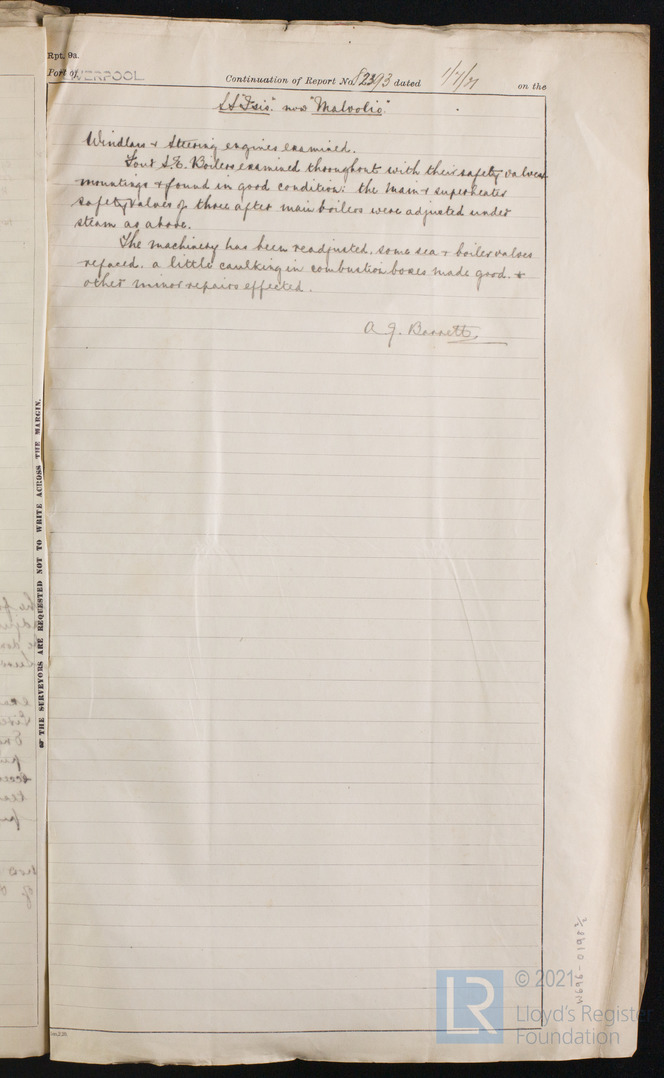 Rpt. 9a.
Port of LIVERPOOL
Continuation of Report No. 82393 dated 1/7/71 on the
SS "Isis" now "Malvolio"
Windlass & Steering engines examined.
Four S.E. Boilers examined throughout with their safety valves
mountings & found in good condition: the main & superheater
safety valves of three after main boilers were adjusted under
steam as above.
The machinery has been readjusted. some sea & boiler valves
refaced. a little caulking in combustion boxes made good. &
other minor repairs effected.
A. J. Barnett.
THE SURVEYORS ARE REQUESTED NOT TO WRITE ACROSS THE MARGIN.
W696-0198 1/2
LR
© 2021
Lloyd's Register
Foundation